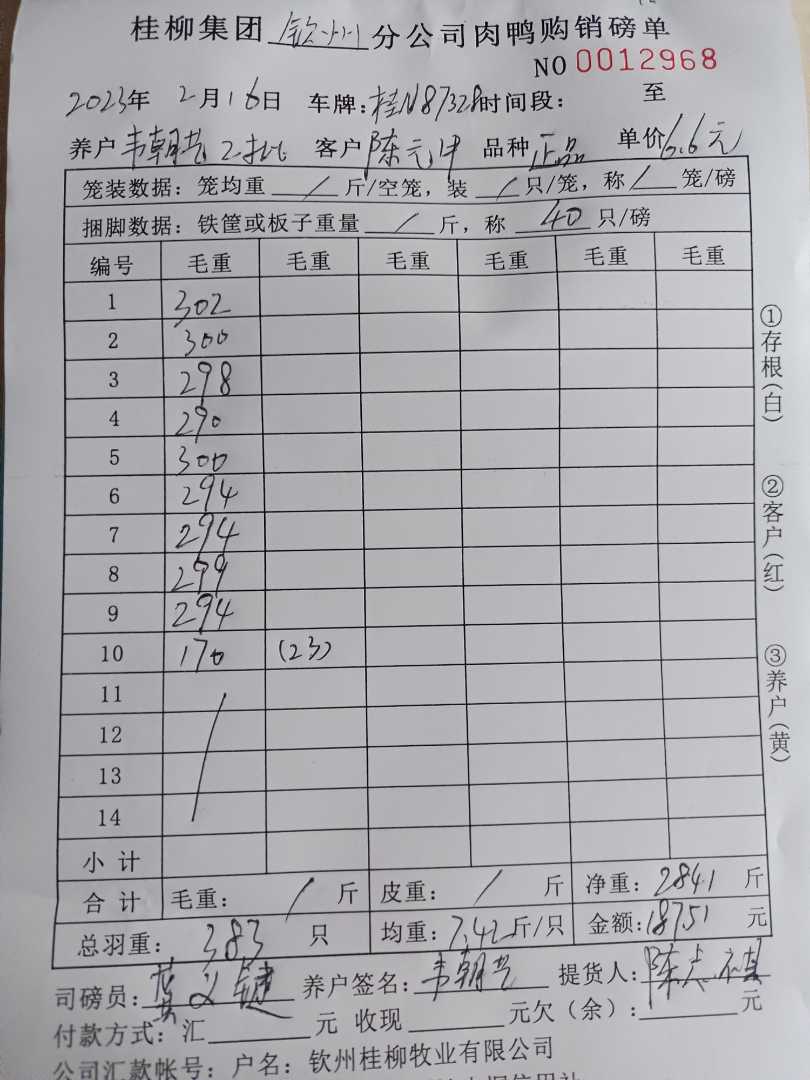 桂柳集团 钦州 分公司肉鸭购销磅单
NO 0012968
2023年 2月16日 车牌:桂N87328时间段: 至
养户 韦朝 2批 客户 陈元 品种 正品 单价6.6元
笼装数据:笼均重 / 斤/空笼,装 / 只/笼,称 / 笼/磅
捆脚数据:铁筐或板子重量 / 斤,称 40 只/磅
编号 毛重 毛重 毛重 毛重 毛重 毛重
1 302
2 300
3 298
4 290
5 300
6 294
7 294
8 299
9 294
10 170 (23)
11
12
13
14
小计
合计 毛重: / 斤 皮重: / 斤 净重:2841 斤
总羽重: 383 只 均重:7.42斤/只 金额:18751 元
司磅员:黄义键 养户签名:韦朝 提货人:陈
付款方式:汇 元 收现 元欠(余): 元
公司汇款帐号:户名:钦州桂柳牧业有限公司
①存根(白)
②客户(红)
③养户(黄)